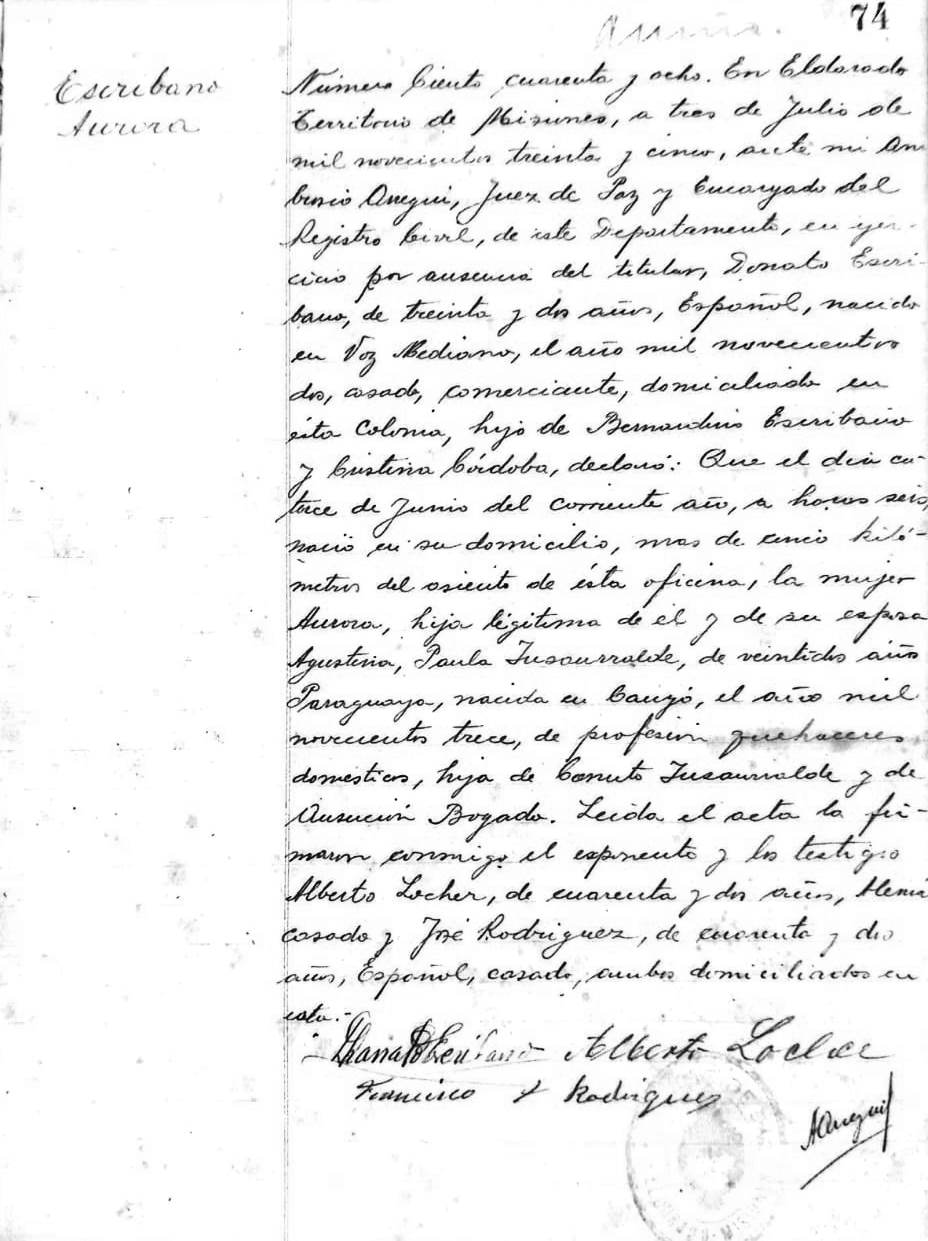 74
Escribano
Aurora
Número Ciento cuarenta y ocho. En Eldorado
Territorio de Misiones, a tres de Julio de
mil novecientos treinta y cinco, ante mi Am
brosio Anegui, Juez de Paz y Encargado del
Registro Civil, de este Departamento, en ejer-
cicio por ausencia del titular, Donato Escri-
bano, de treinta y dos años, Español, nacido
en Voz Mediano, el año mil novecientos
dos, casado, comerciante, domiciliado en
ésta Colonia, hijo de Bernardino Escribano
y Cristina Córdoba, declaró: Que el dia ca-
torce de Junio del corriente año, a horas seis,
nació en su domicilio, mas de cinco kiló-
metros del asiento de ésta oficina, la mujer
Aurora, hija légitima de él y de su esposa
Agustina, Paula Insaurralde, de veintidos años
Paraguaya, nacida en el año mil
novecientos trece, de profesión quehaceres
domésticos, hija de Canuto Insaurralde y de
Asunción Bogado. Leida el acta la fir-
maron conmigo el esponente y los testigos
Alberto Locher, de cuarenta y dos años, Alemán
casado y José Rodriguez, de cuarenta y dos
años, Español, casado, ambos domiciliados en
esta.-
Escribano Alberto Locher
Francisco Rodriguez
AAnegui